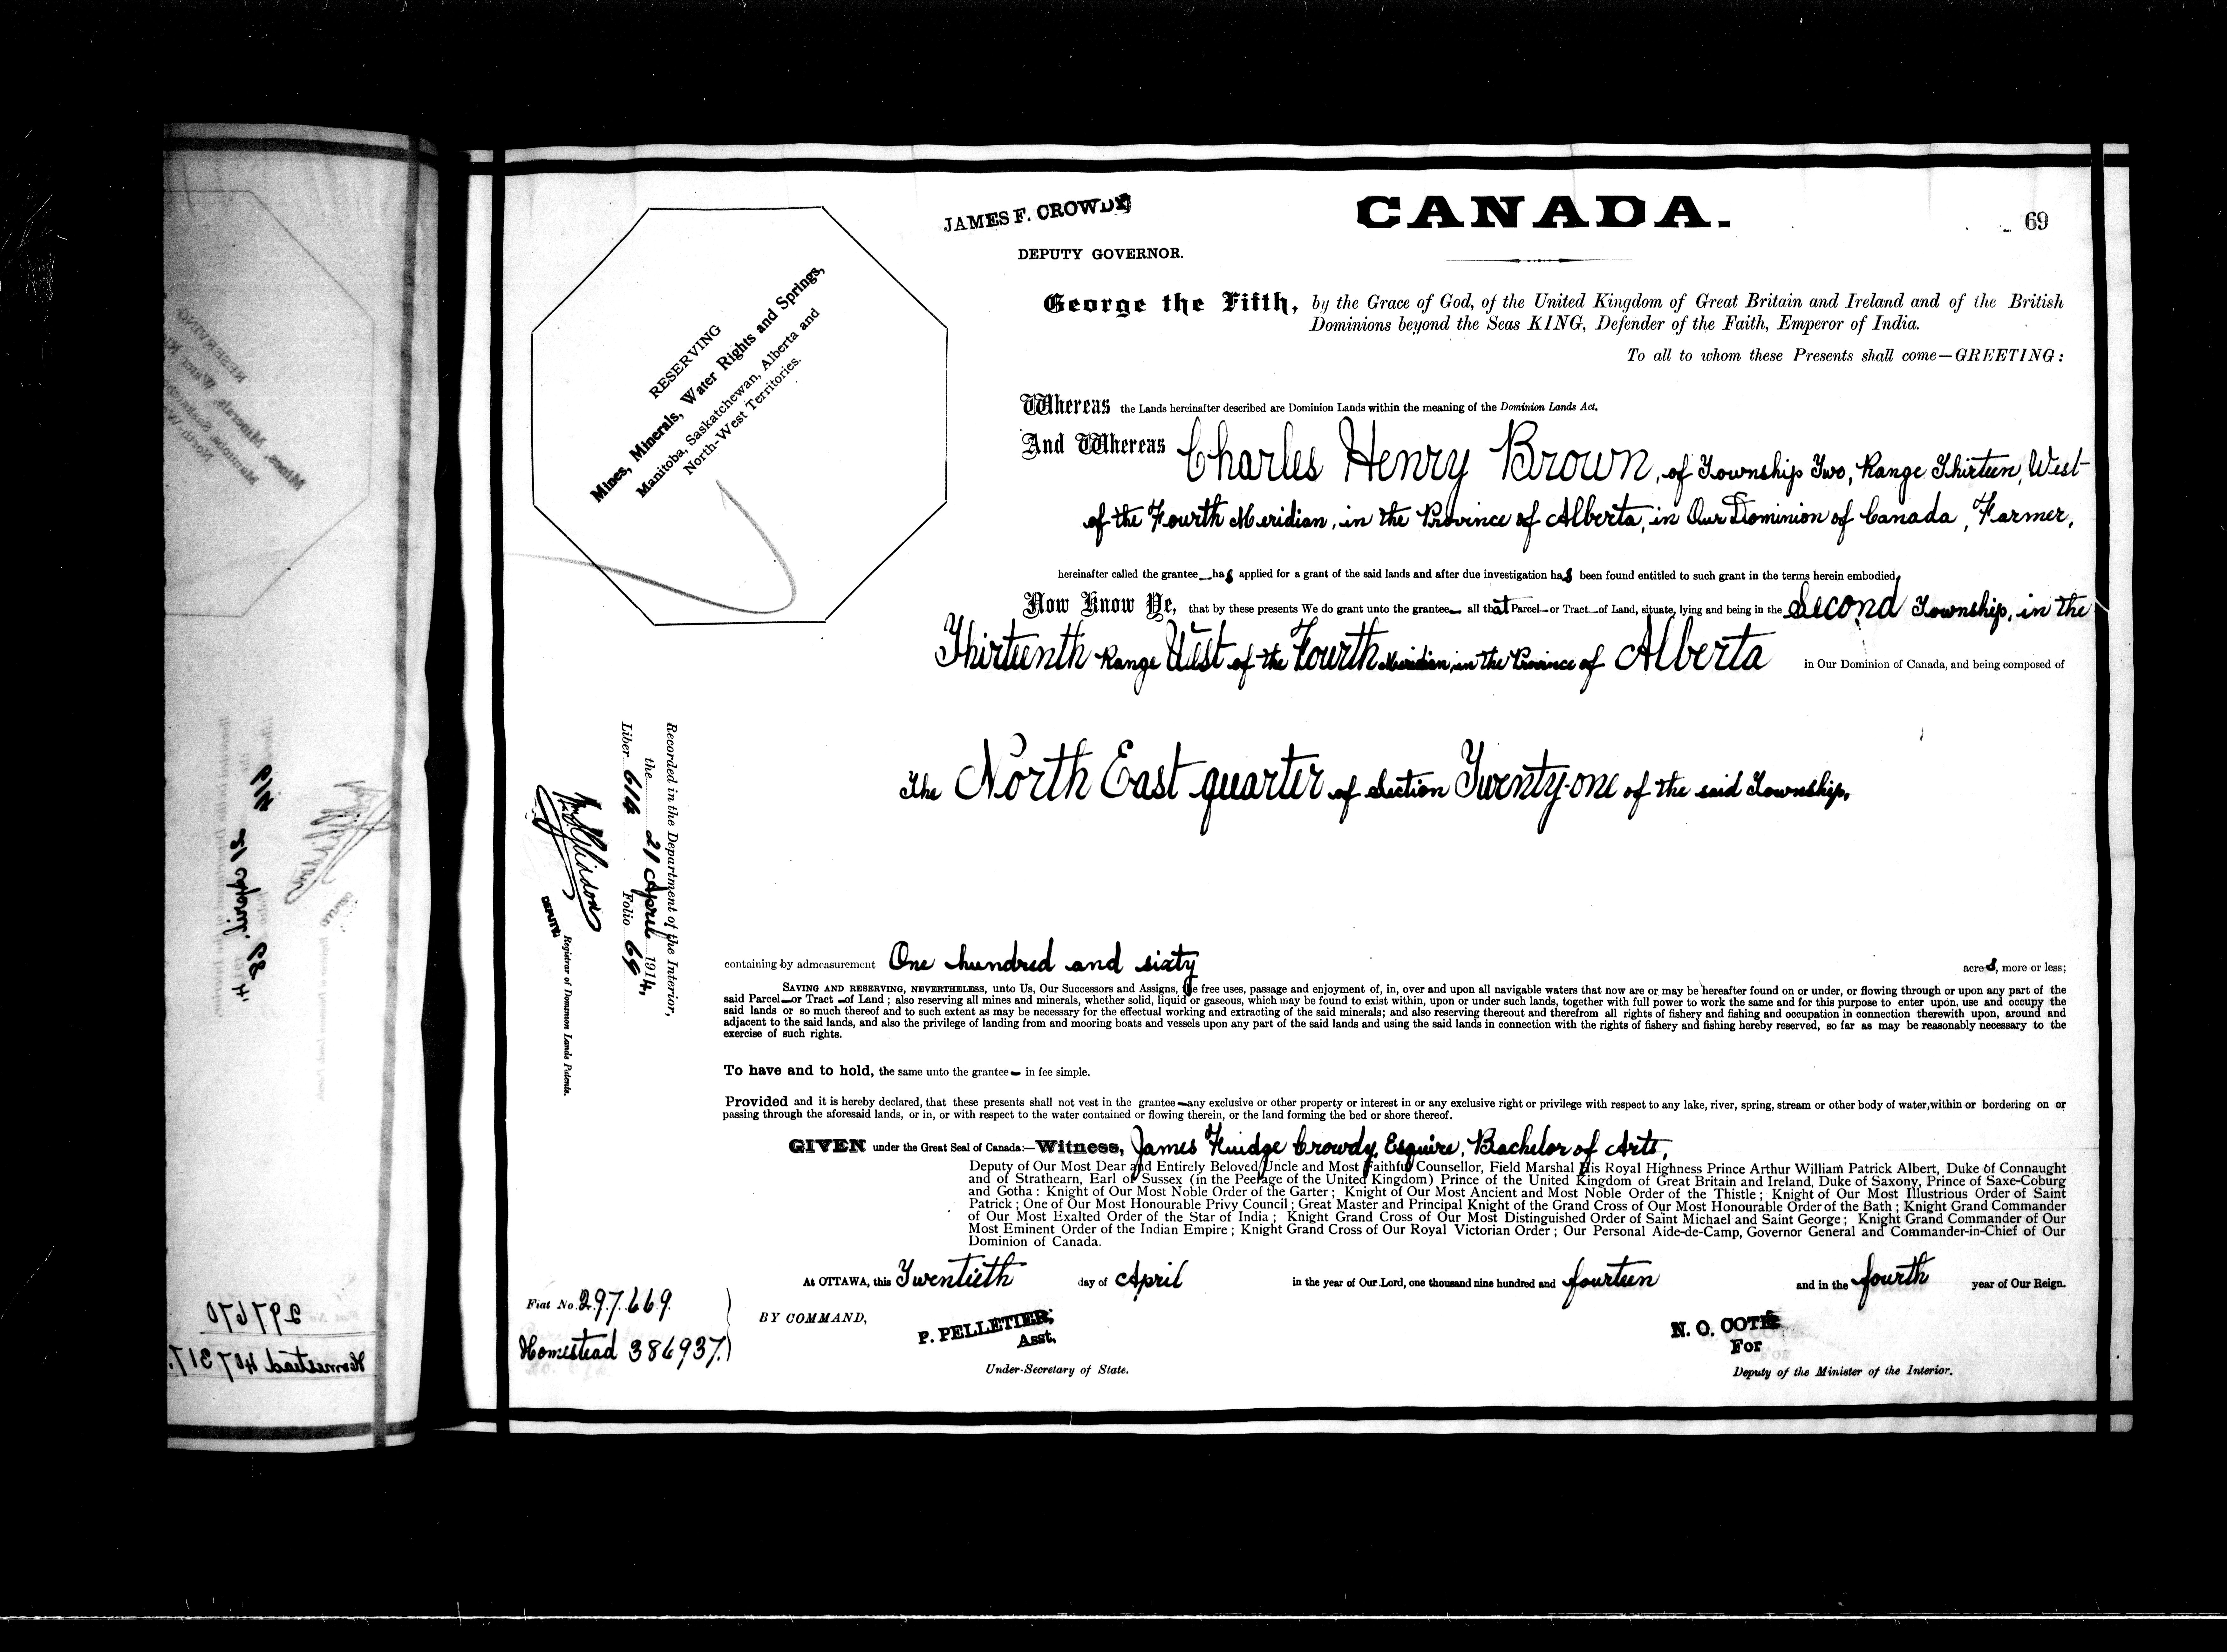 JAMES F. CROWDY
DEPUTY GOVERNOR.
CANADA.
69
RESERVING
Mines, Minerals, Water Rights and Springs,
Manitoba, Saskatchewan, Alberta and
North-West Territories.
George the Fifth, by the Grace of God, of the United Kingdom of Great Britain and Ireland and of the British
Dominions beyond the Seas KING, Defender of the Faith, Emperor of India.
To all to whom these Presents shall come—GREETING:
Whereas the Lands hereinafter described are Dominion Lands within the meaning of the Dominion Lands Act.
And Whereas Charles Henry Brown, of Township Two, Range Thirteen, West
of the Fourth Meridian, in the Province of Alberta, in Our Dominion of Canada, Farmer,
hereinafter called the grantee has applied for a grant of the said lands and after due investigation has been found entitled to such grant in the terms herein embodied,
Now Know Ye, that by these presents We do grant unto the grantee all that Parcel or Tract of Land, situate, lying and being in the Second Township, in the
Thirteenth Range West of the Fourth Meridian, in the Province of Alberta in Our Dominion of Canada, and being composed of
The North East quarter of Section Twenty-one of the said Township,
Recorded in the Department of the Interior,
the 21 April 1914,
Liber 614 Folio 69
DEPUTY
Registrar of Dominion Lands Patents.
containing by admeasurement One hundred and sixty acres, more or less;
SAVING AND RESERVING, NEVERTHELESS, unto Us, Our Successors and Assigns, the free uses, passage and enjoyment of, in, over and upon all navigable waters that now are or may be hereafter found on or under, or flowing through or upon any part of the
said Parcel or Tract of Land; also reserving all mines and minerals, whether solid, liquid or gaseous, which may be found to exist within, upon or under such lands, together with full power to work the same and for this purpose to enter upon, use and occupy the
said lands or so much thereof and to such extent as may be necessary for the effectual working and extracting of the said minerals; and also reserving thereout and therefrom all rights of fishery and fishing and occupation in connection therewith upon, around and
adjacent to the said lands, and also the privilege of landing from and mooring boats and vessels upon any part of the said lands and using the said lands in connection with the rights of fishery and fishing hereby reserved, so far as may be reasonably necessary to the
exercise of such rights.
To have and to hold, the same unto the grantee in fee simple.
Provided and it is hereby declared, that these presents shall not vest in the grantee any exclusive or other property or interest in or any exclusive right or privilege with respect to any lake, river, spring, stream or other body of water, within or bordering on or
passing through the aforesaid lands, or in, or with respect to the water contained or flowing therein, or the land forming the bed or shore thereof.
GIVEN under the Great Seal of Canada:—Witness, James Crowdy, Esquire, Bachelor of Arts,
Deputy of Our Most Dear and Entirely Beloved Uncle and Most Faithful Counsellor, Field Marshal His Royal Highness Prince Arthur William Patrick Albert, Duke of Connaught
and of Strathearn, Earl of Sussex (in the Peerage of the United Kingdom) Prince of the United Kingdom of Great Britain and Ireland, Duke of Saxony, Prince of Saxe-Coburg
and Gotha: Knight of Our Most Noble Order of the Garter; Knight of Our Most Ancient and Most Noble Order of the Thistle; Knight of Our Most Illustrious Order of Saint
Patrick; One of Our Most Honourable Privy Council; Great Master and Principal Knight of the Grand Cross of Our Most Honourable Order of the Bath; Knight Grand Commander
of Our Most Exalted Order of the Star of India; Knight Grand Cross of Our Most Distinguished Order of Saint Michael and Saint George; Knight Grand Commander of Our
Most Eminent Order of the Indian Empire; Knight Grand Cross of Our Royal Victorian Order; Our Personal Aide-de-Camp, Governor General and Commander-in-Chief of Our
Dominion of Canada.
At OTTAWA, this Twentieth day of April in the year of Our Lord, one thousand nine hundred and fourteen and in the fourth year of Our Reign.
Fiat No. 297669.
Homestead 386937.
BY COMMAND,
P. PELLETIER,
Asst.
Under-Secretary of State.
N. O. COTE
For
Deputy of the Minister of the Interior.
297670
Homestead 407317.